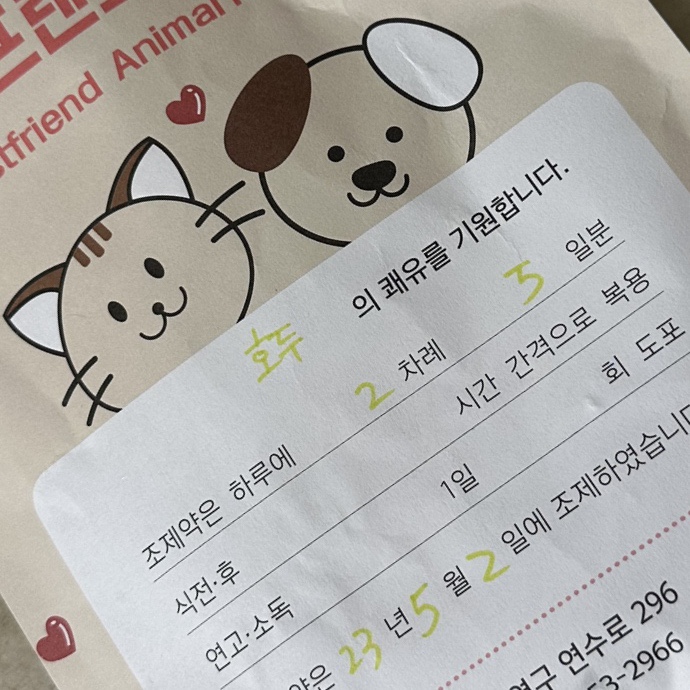 stfriend Animal
호두 의 쾌유를 기원합니다.
조제약은 하루에 2 차례 3 일분
식전·후 시간 간격으로 복용
연고·소독 1일 회 도포
약은 23 년 5 월 2 일에 조제하였습니다
연수로 296
53-2966